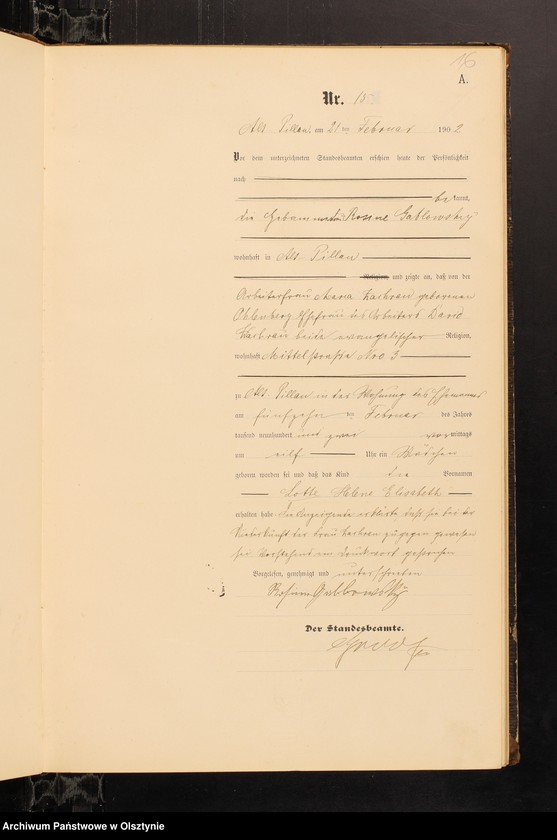 A.
Nr. 15
Alt-Pillau, am 21 ten Februar 1902
Vor dem unterzeichneten Standesbeamten erschien heute der Persönlichkeit
nach
bekannt,
die Hebammerin Rosine Gablowsky
wohnhaft in Alt-Pillau
Religion, und zeigte an, daß von der
Arbeiterfrau Maria geborenen
Ohlenberg Ehefrau des Arbeiters David
beide evangelischer Religion,
wohnhaft Mittelstraße Nro 3
zu Alt-Pillau in der Wohnung des Ehemannes
am fünfzehn ten Februar des Jahres
tausend neunhundert und zwei vormittags
um eilf Uhr ein Mädchen
geboren worden sei und daß das Kind die Vornamen
Lotte Helene Elisabeth
erhalten habe. Die Anzeigende erklärte, daß sie bei der
Niederkunft der Frau zugegen gewesen
sei. Vorstehend ein Druckwort gestrichen
Vorgelesen, genehmigt und unterschrieben
Rosine Gablowsky
Der Standesbeamte.
Archiwum Państwowe w Olsztynie